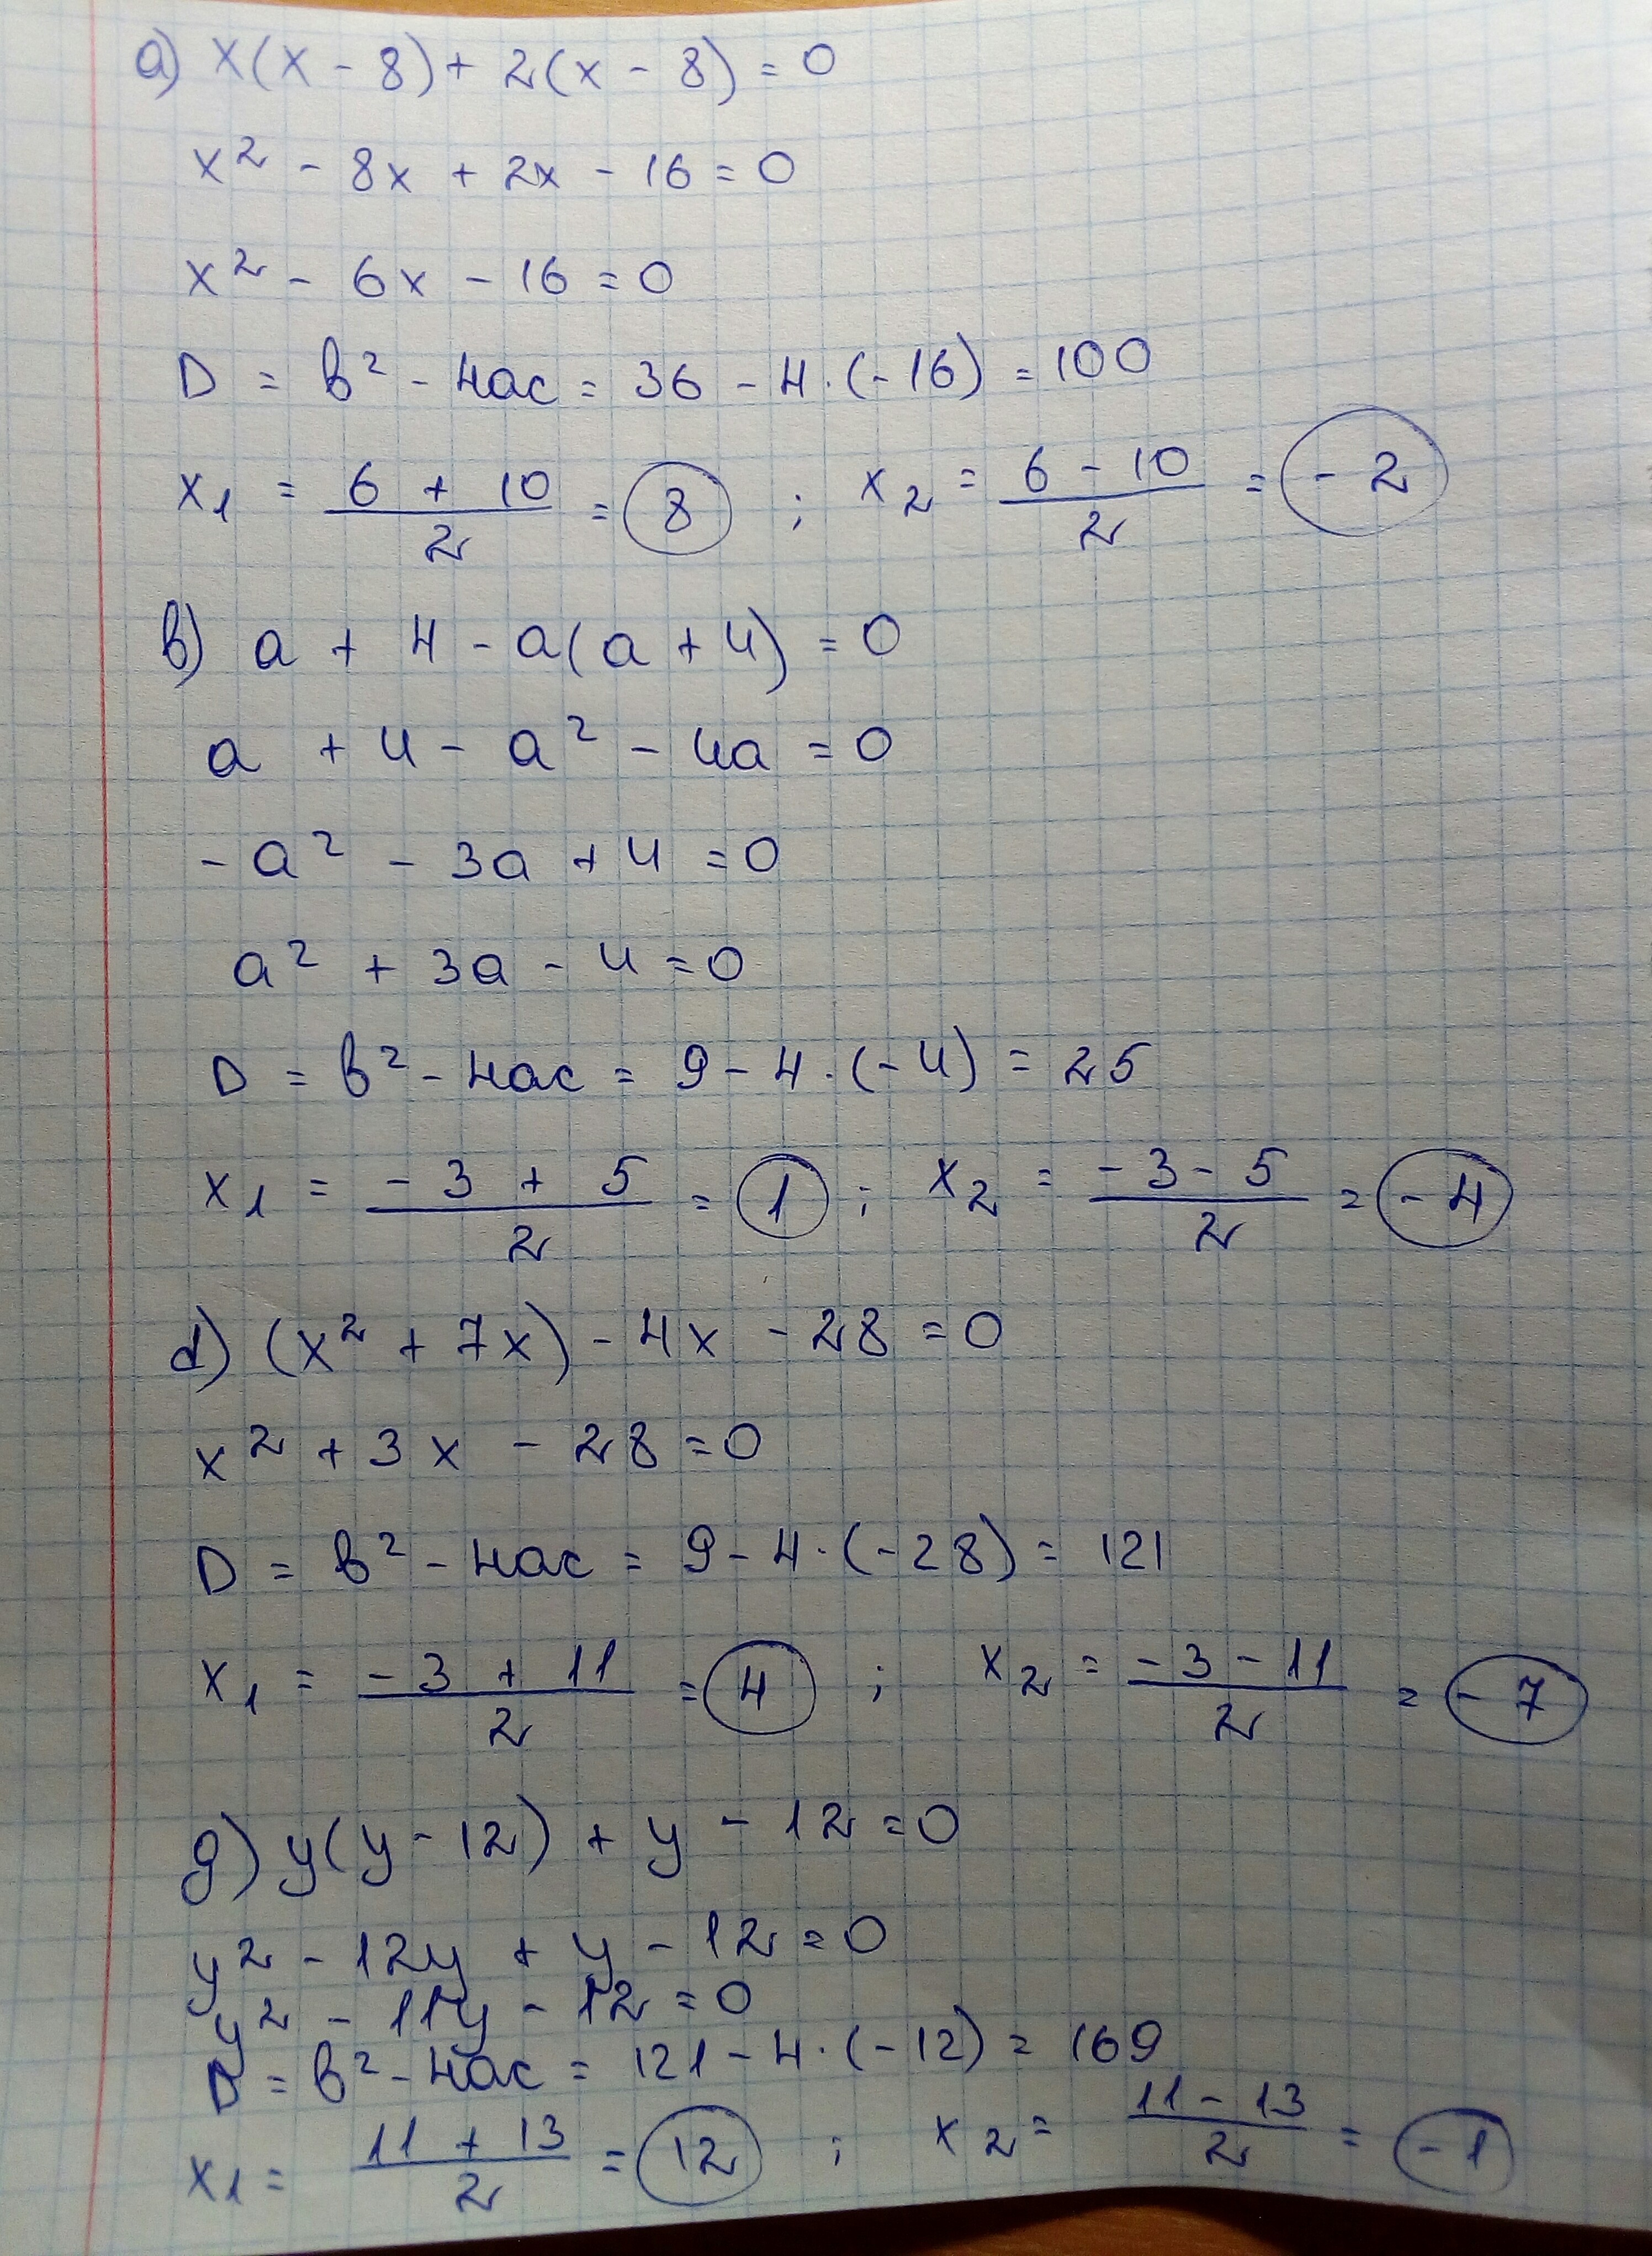 а) x(x - 8) + 2(x - 8) = 0
x² - 8x + 2x - 16 = 0
x² - 6x - 16 = 0
D = b² - 4ac = 36 - 4·(-16) = 100
x₁ = (6 + 10)/2 = 8 ; x₂ = (6 - 10)/2 = -2
в) a + 4 - a(a + 4) = 0
a + 4 - a² - 4a = 0
-a² - 3a + 4 = 0
a² + 3a - 4 = 0
D = b² - 4ac = 9 - 4·(-4) = 25
x₁ = (-3 + 5)/2 = 1 ; x₂ = (-3 - 5)/2 = -4
d) (x² + 7x) - 4x - 28 = 0
x² + 3x - 28 = 0
D = b² - 4ac = 9 - 4·(-28) = 121
x₁ = (-3 + 11)/2 = 4 ; x₂ = (-3 - 11)/2 = -7
g) y(y - 12) + y - 12 = 0
y² - 12y + y - 12 = 0
y² - 11y - 12 = 0
D = b² - 4ac = 121 - 4·(-12) = 169
x₁ = (11 + 13)/2 = 12 ; x₂ = (11 - 13)/2 = -1